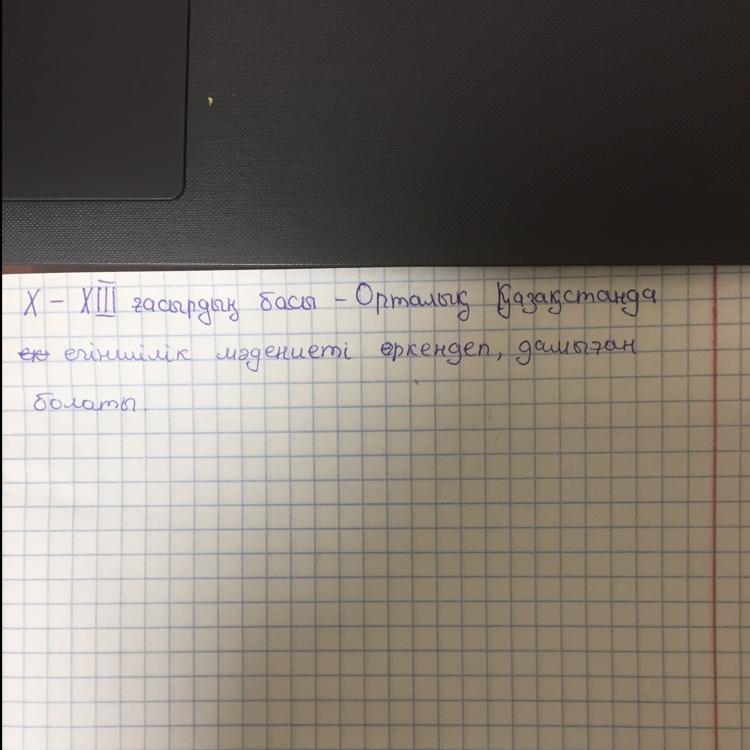 X – XIII ғасырдың басы – Орталық Қазақстанда
егіншілік мәдениеті өркендеп, дамыған
болаты.